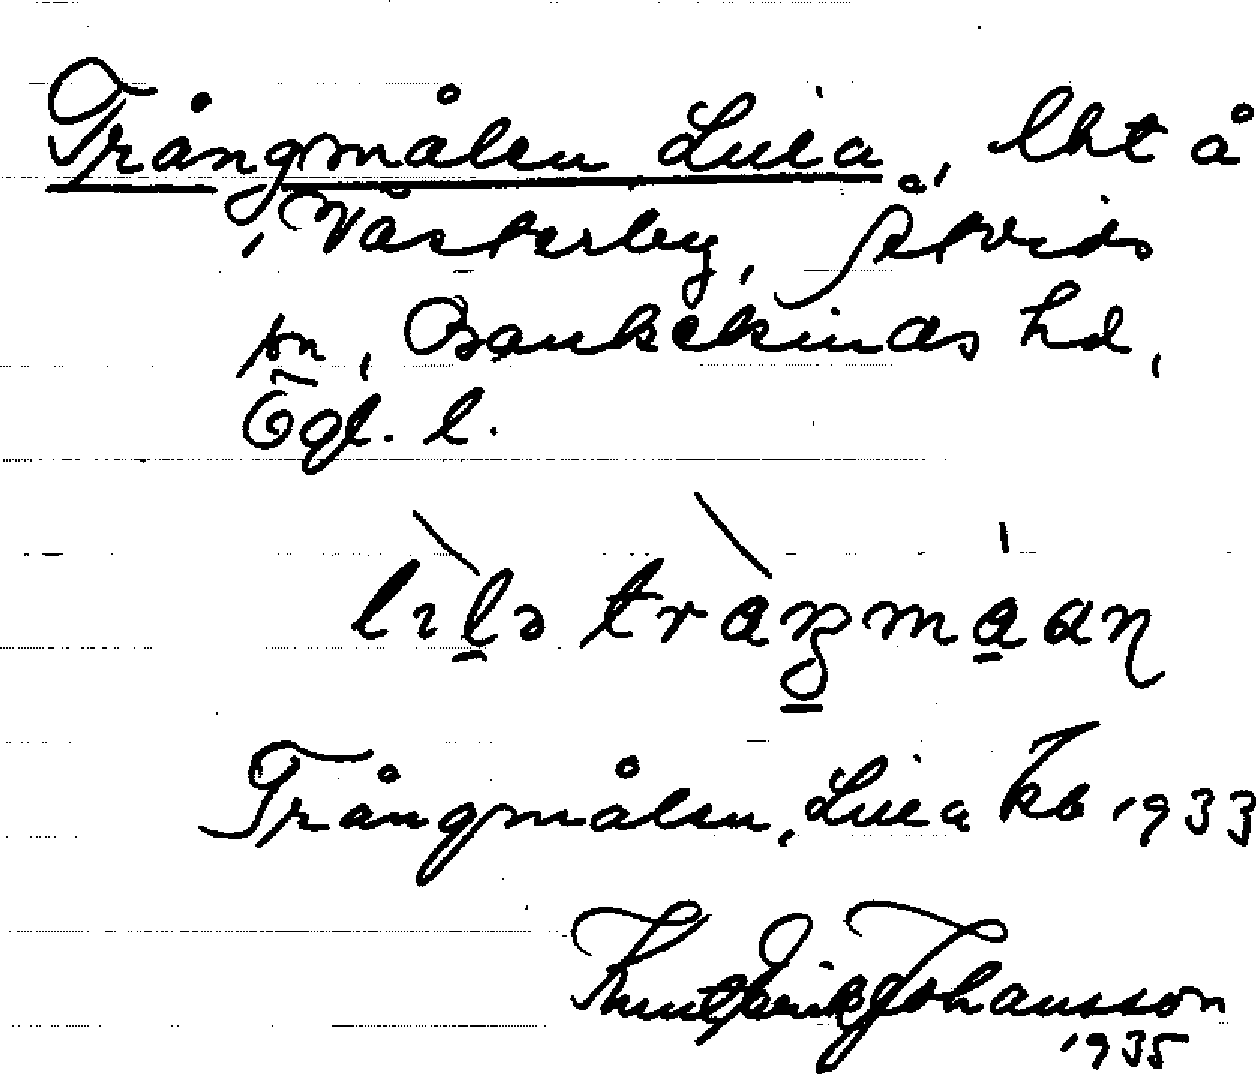 Trångmålen Lilla, lht å
Västerby, Åtvids
sn, Bankekinds hd,
Ögl. l.
Trångmålen, Lilla Kb 1933
Knut Erik Johansson
1935